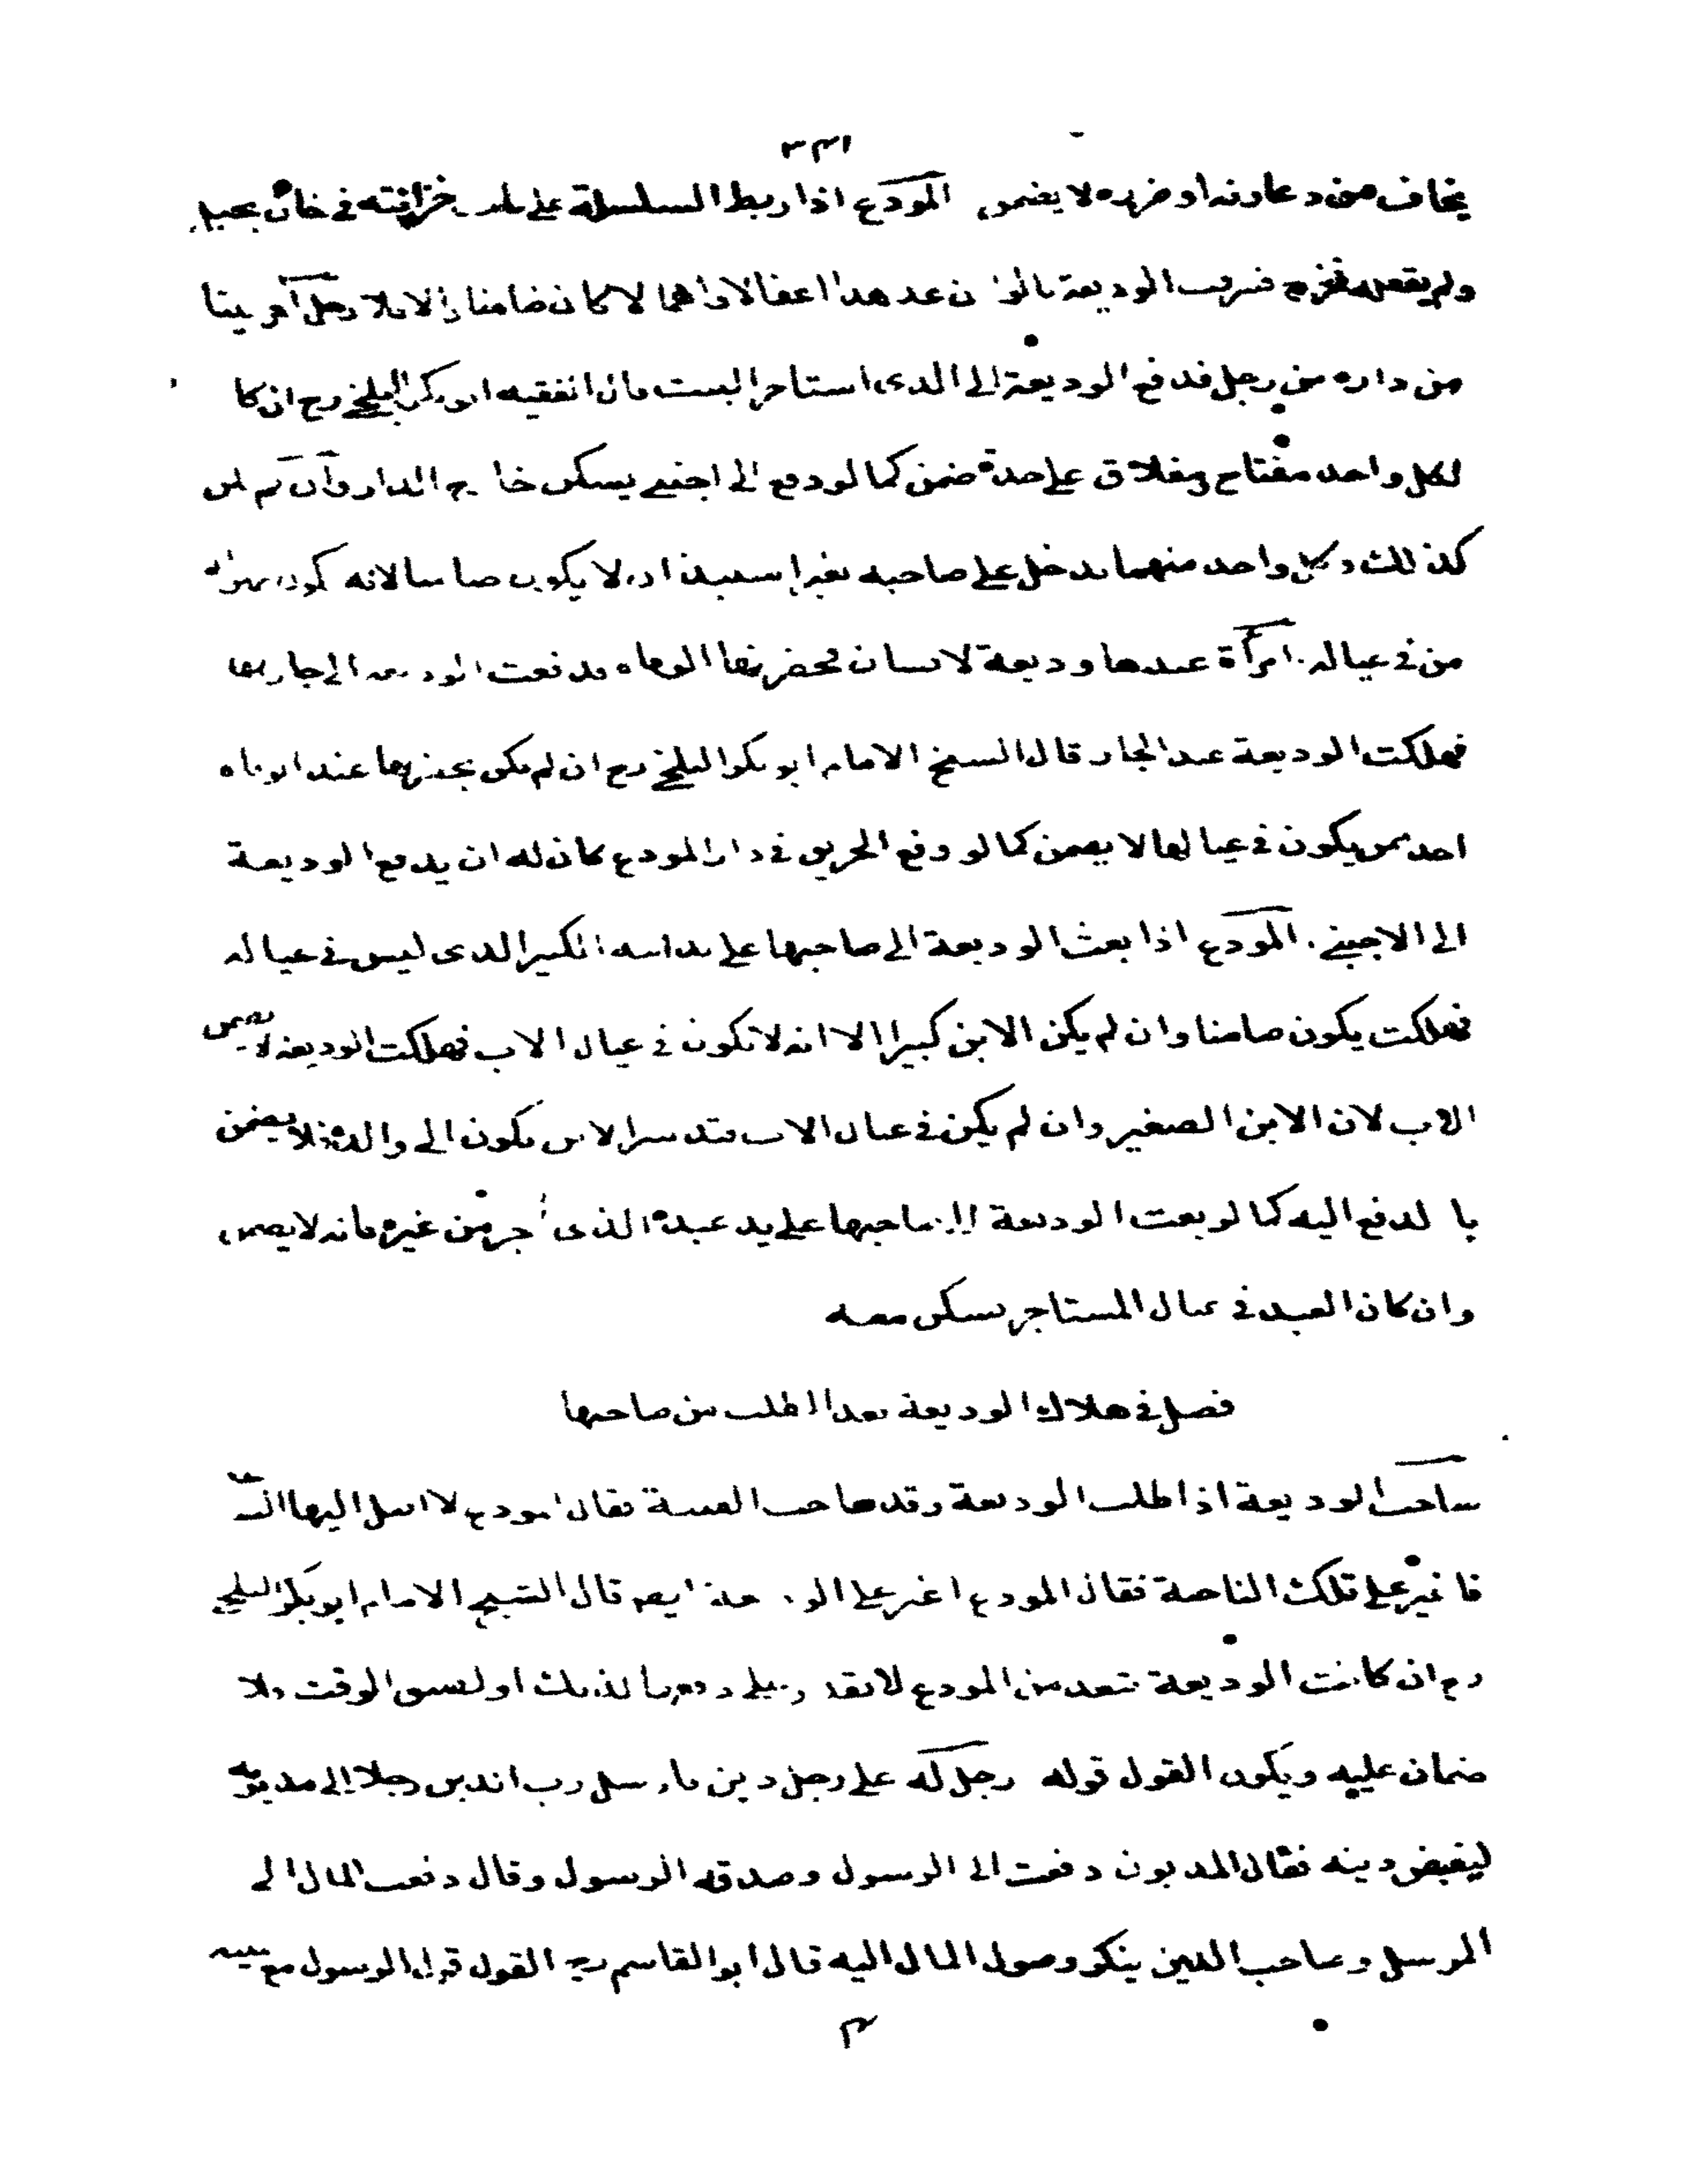 ٣٣١
يخاف من دعارته او ضربه لا يضمن المودع اذا ربط السلسلة على باب خزانته فى خان بحبل
ولم يقفله فخرج فسرقت الوديعة قالوا ان عد هذا اغفالا واهمالا كان ضامنا والا فلا رجل آجر بيتا
من داره من رجل فدفع الوديعة الى الذى استاجر البيت قال الفقيه ابو بكر البلخى رح ان كا
لكل واحد مفتاح ومغلاق على حدة ضمن كما لو دفع الى اجنبى يسكن خارج الدار وان لم يكن
كذلك وكل واحد منهما يدخل على صاحبه بغير استيذان لا يكون ضامنا لانه يكون بمنزلة
من فى عياله امرأة عندها وديعة لانسان فحضرتها الوفاة فدفعت الوديعة الى جارها
فهلكت الوديعة عند الجار قال الشيخ الامام ابو بكر البلخى رح ان لم يكن بحضرتها عند الوفاة
احد ممن يكون فى عيالها لا يضمن كما لو وقع الحريق فى دار المودع كان له ان يدفع الوديعة
الى الاجنبى المودع اذا بعث الوديعة الى صاحبها على يد ابنه الكبير الذى ليس فى عياله
فهلكت يكون ضامنا وان لم يكن الابن كبيرا الا انه لا يكون فى عيال الاب فهلكت الوديعة لا يضمن
الاب لان الابن الصغير وان لم يكن فى عيال الاب فتدبير الابن يكون الى والده فلا يضمن
با لدفع اليه كما لو بعث الوديعة الى صاحبها على يد عبده الذى آجر من غيره فانه لا يضمن
وان كان العبد فى عيال المستاجر يسكن معه
فصل فى هلاك الوديعة بعد الطلب من صاحبها
صاحب الوديعة اذا طلب الوديعة وقد صاحب الفتنة فقال المودع لا اصل اليها الساعة
فاغير على تلك الناحية فقال المودع اغير على الوديعة ايضا قال الشيخ الامام ابو بكر البلخى
رح ان كانت الوديعة بعيدة من المودع لا يقدر على دفعها لذلك او لضيق الوقت فلا
ضمان عليه ويكون القول قوله رجل له على رجل دين فارسل رب الدين رجلا الى مديونه
ليقبض دينه فقال المديون دفعت الى الرسول وصدقه الرسول وقال دفعت المال الى
المرسل وصاحب الدين ينكر وصول المال اليه قال ابو القاسم رح القول قول الرسول مع يمينه